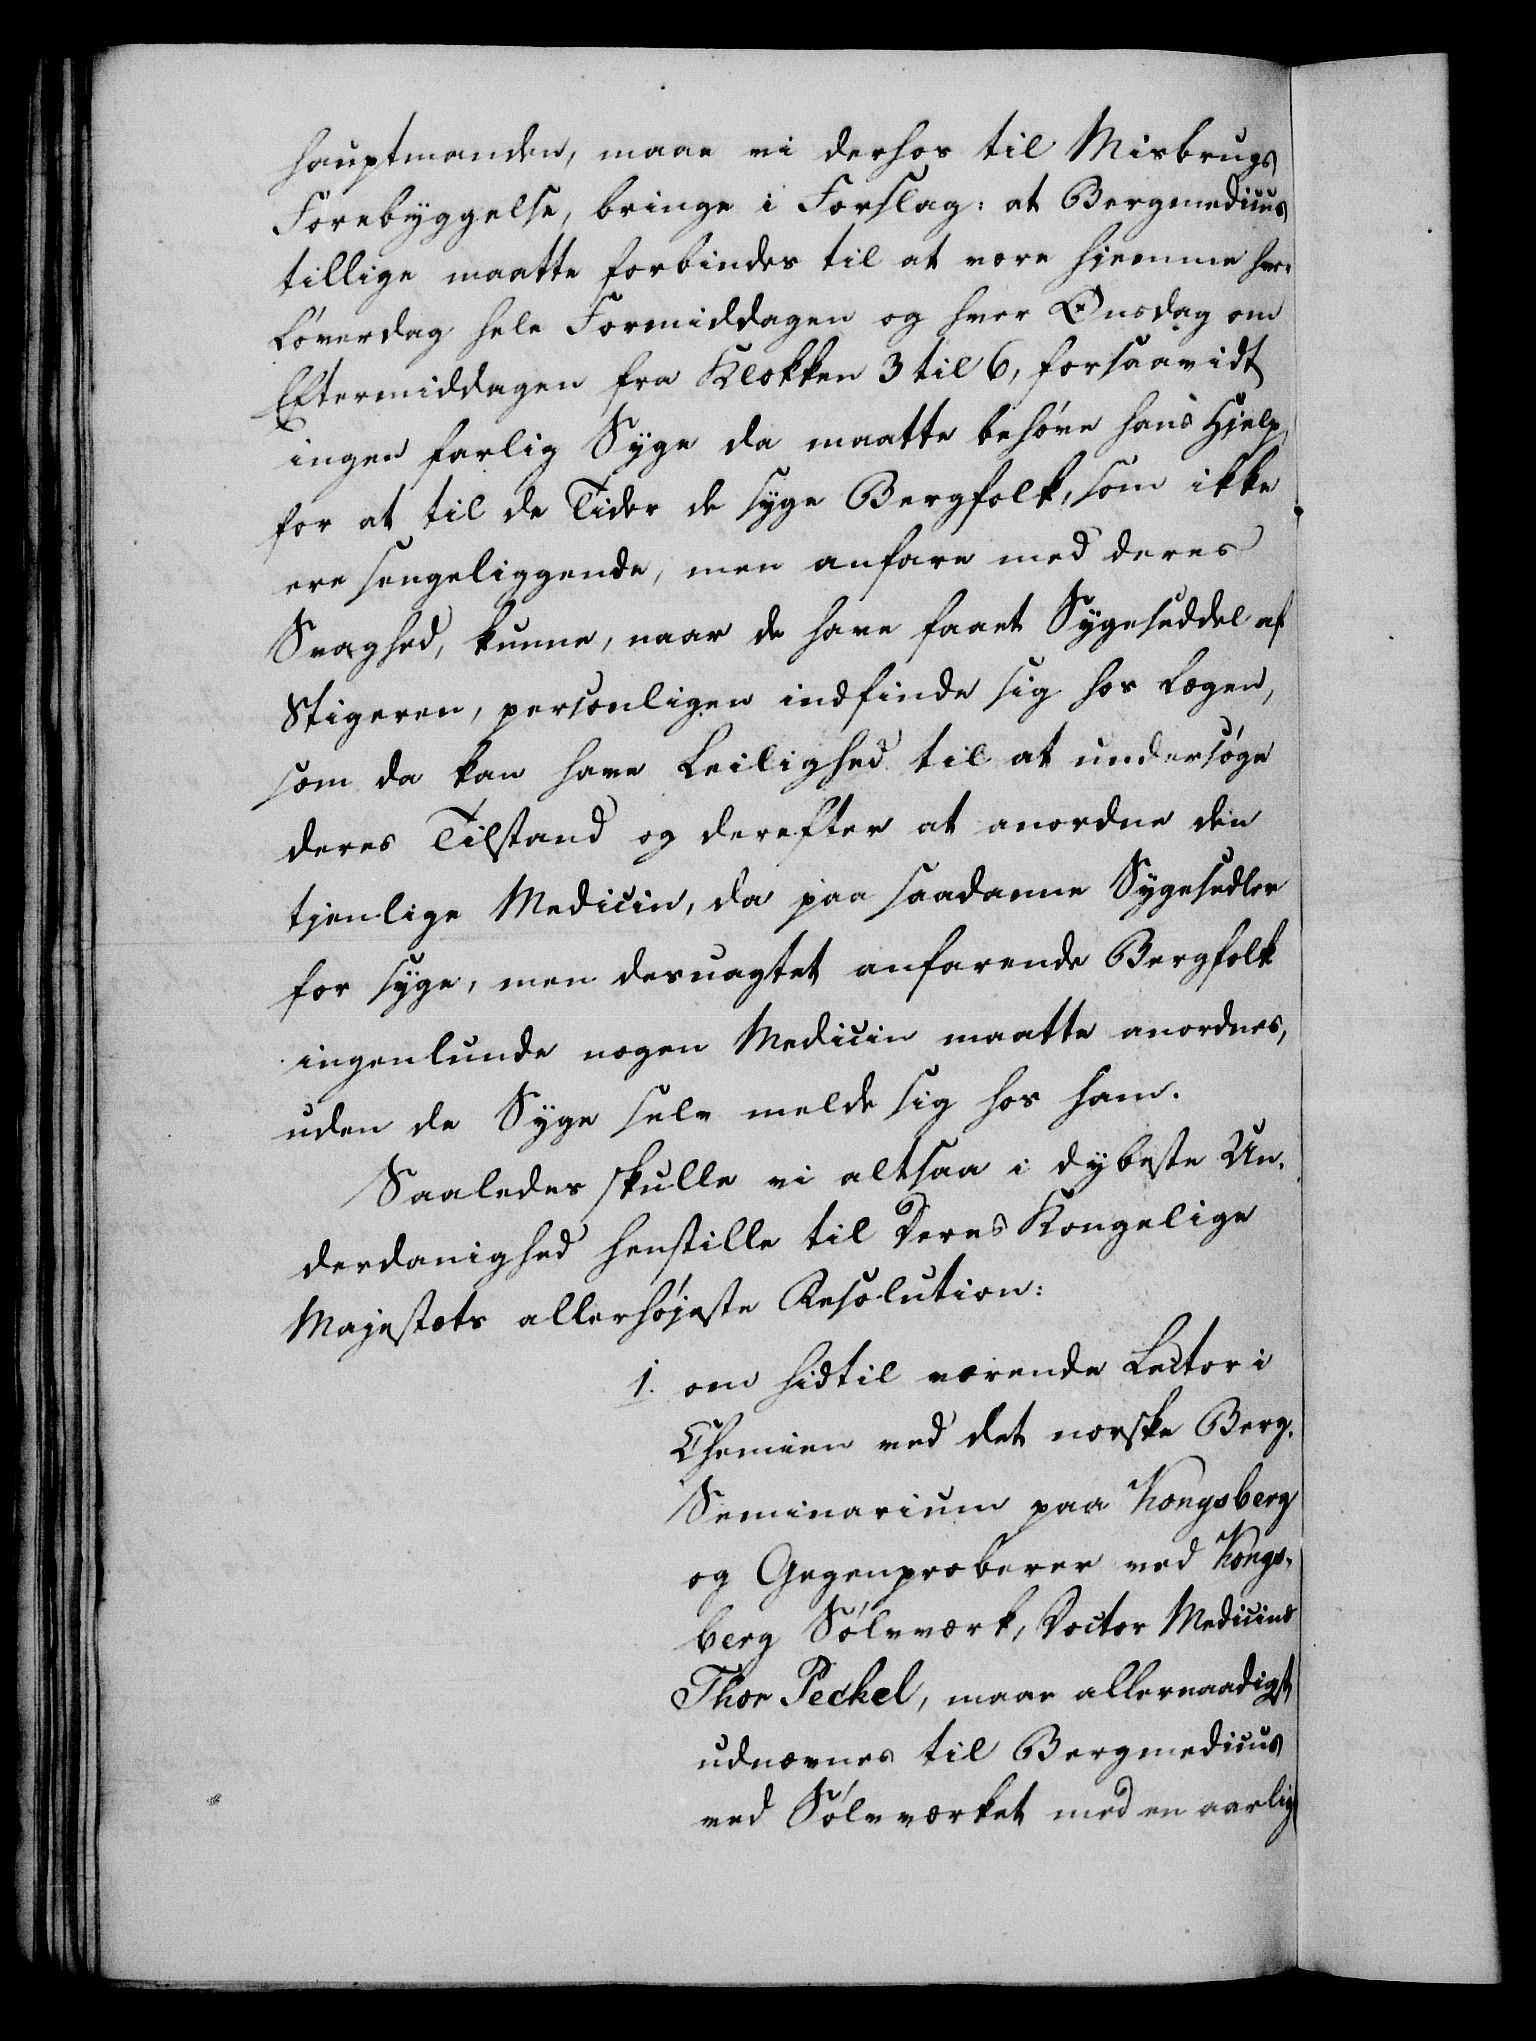 hauptmanden, maae vi derhos til Misbrugs
Forebyggelse, bringe i Forslag: at Bergmedicus
tillige maatte forbindes til at være hjemme hver
Løverdag hele Formiddagen og hver Onsdag om
Eftermiddagen fra Klokken 3 til 6, forsaavidt
ingen farlig Syge da maatte behøve hans Hjelp,
for at til de Tider de syge Bergfolk, som ikke
ere sengeliggende, men anfare med deres
Svaghed, kunne, naar de have faaet Sygeseddel af
Stigeren, personligen indfinde sig hos Lægen,
som da kan have Leilighed til at undersøge
deres Tilstand og derefter at anordne den
tjenlige Medicin, da paa saadanne Sygesedler
for syge, men desuagtet anfarende Bergfolk
ingenlunde nogen Medicin maatte anordnes,
uden de Syge selv melde sig hos ham.
Saaledes skulle vi altsaa i dybeste Un-
derdanighed henstille til Deres Kongelige
Majestæts allerhøjeste Resolution:
1. om hidtil værende Lector i
Chemien ved det norske Berg-
Seminarium paa Kongsberg
og Gegenproberer ved Kongs-
berg Sølvværk, Doctor Medicinæ
Thor Peckel, maae allernaadigst
udnævnes til Bergmedicus
ved Sølvværket med en aarlig